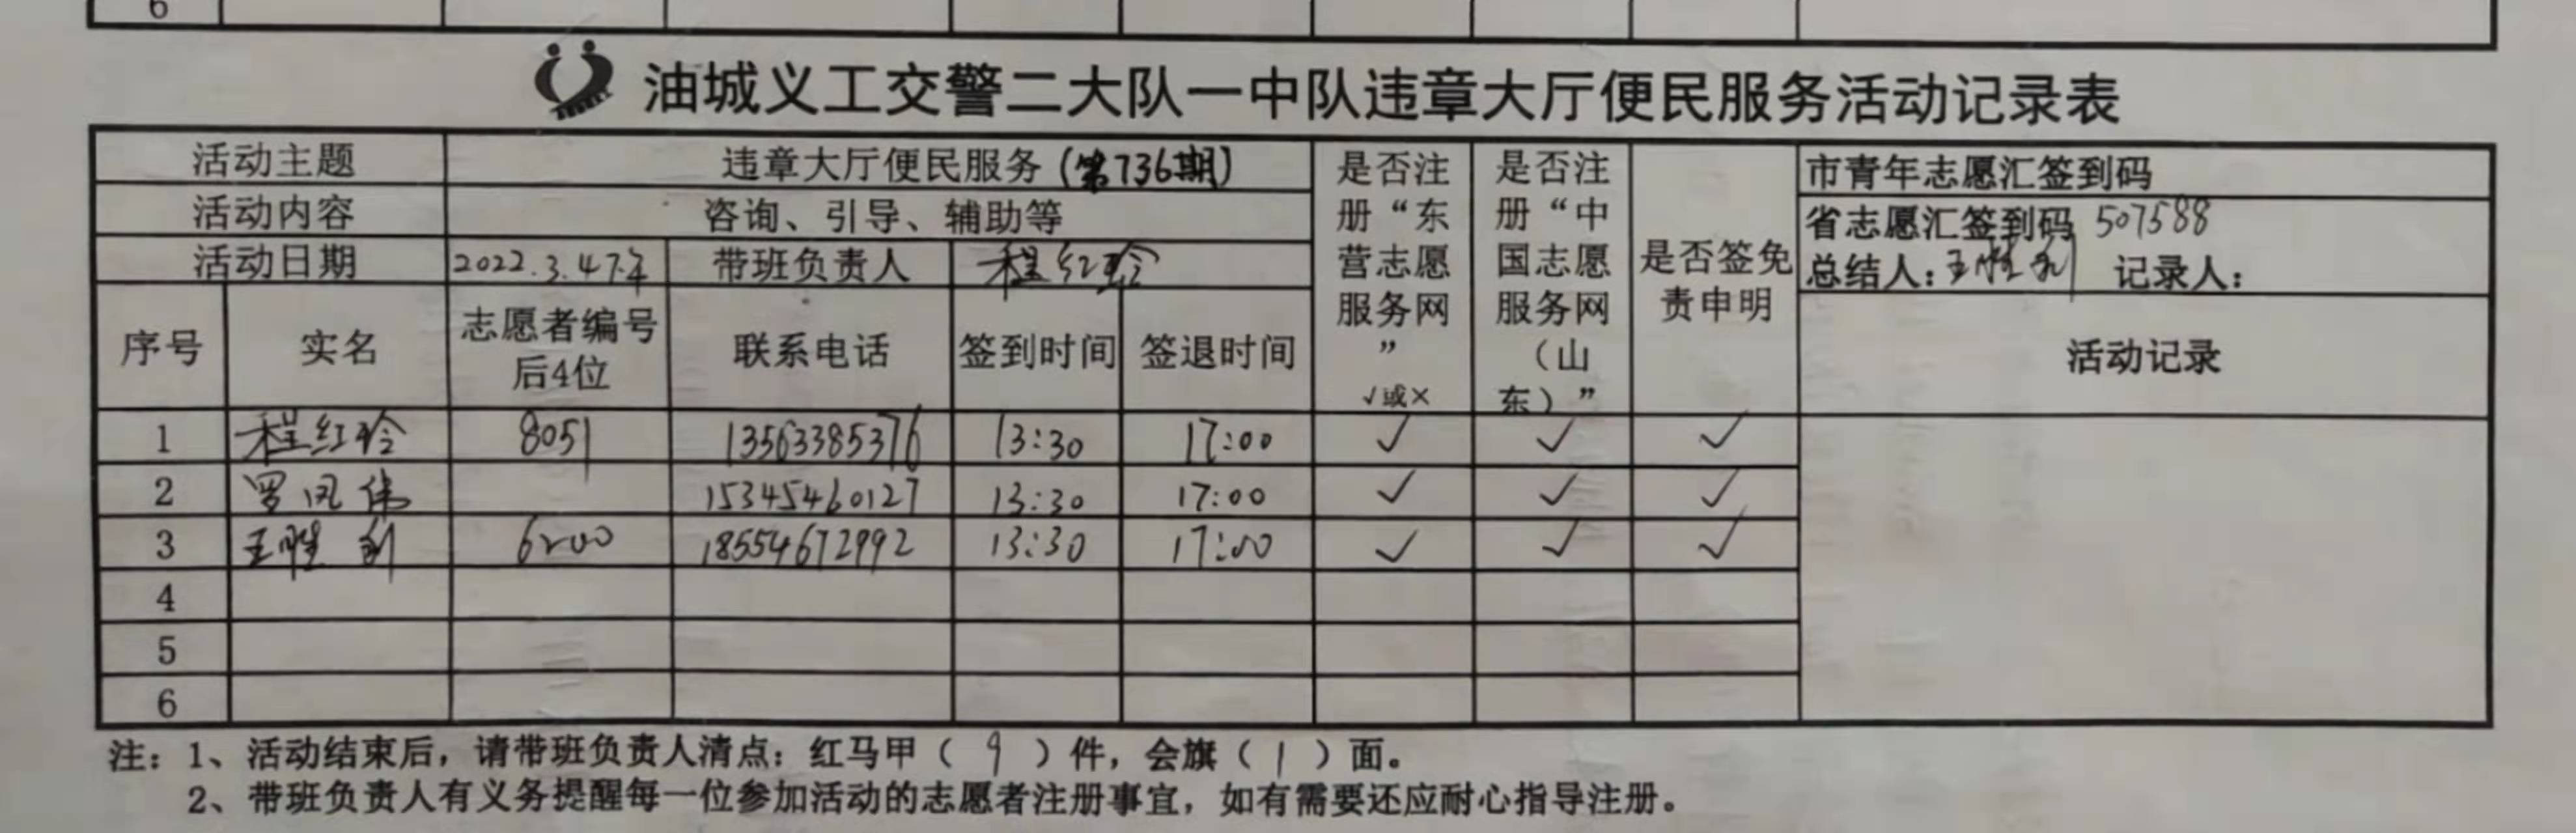 6
油城义工交警二大队一中队违章大厅便民服务活动记录表
活动主题 违章大厅便民服务(第736期) 是否注册“东营志愿服务网” √或× 是否注册“中国志愿服务网（山东）” 是否签免责申明 市青年志愿汇签到码
活动内容 咨询、引导、辅助等 省志愿汇签到码 507588
活动日期 2022.3.4下午 带班负责人 程红玲 总结人：王胜利 记录人：
序号 实名 志愿者编号后4位 联系电话 签到时间 签退时间 活动记录
1 程红玲 8051 13563385376 13:30 17:00 ✓ ✓ ✓
2 罗凤伟 15345460127 13:30 17:00 ✓ ✓ ✓
3 王胜利 6200 18554672992 13:30 17:00 ✓ ✓ ✓
4
5
6
注：1、活动结束后，请带班负责人清点：红马甲（ 9 ）件，会旗（ 1 ）面。
2、带班负责人有义务提醒每一位参加活动的志愿者注册事宜，如有需要还应耐心指导注册。